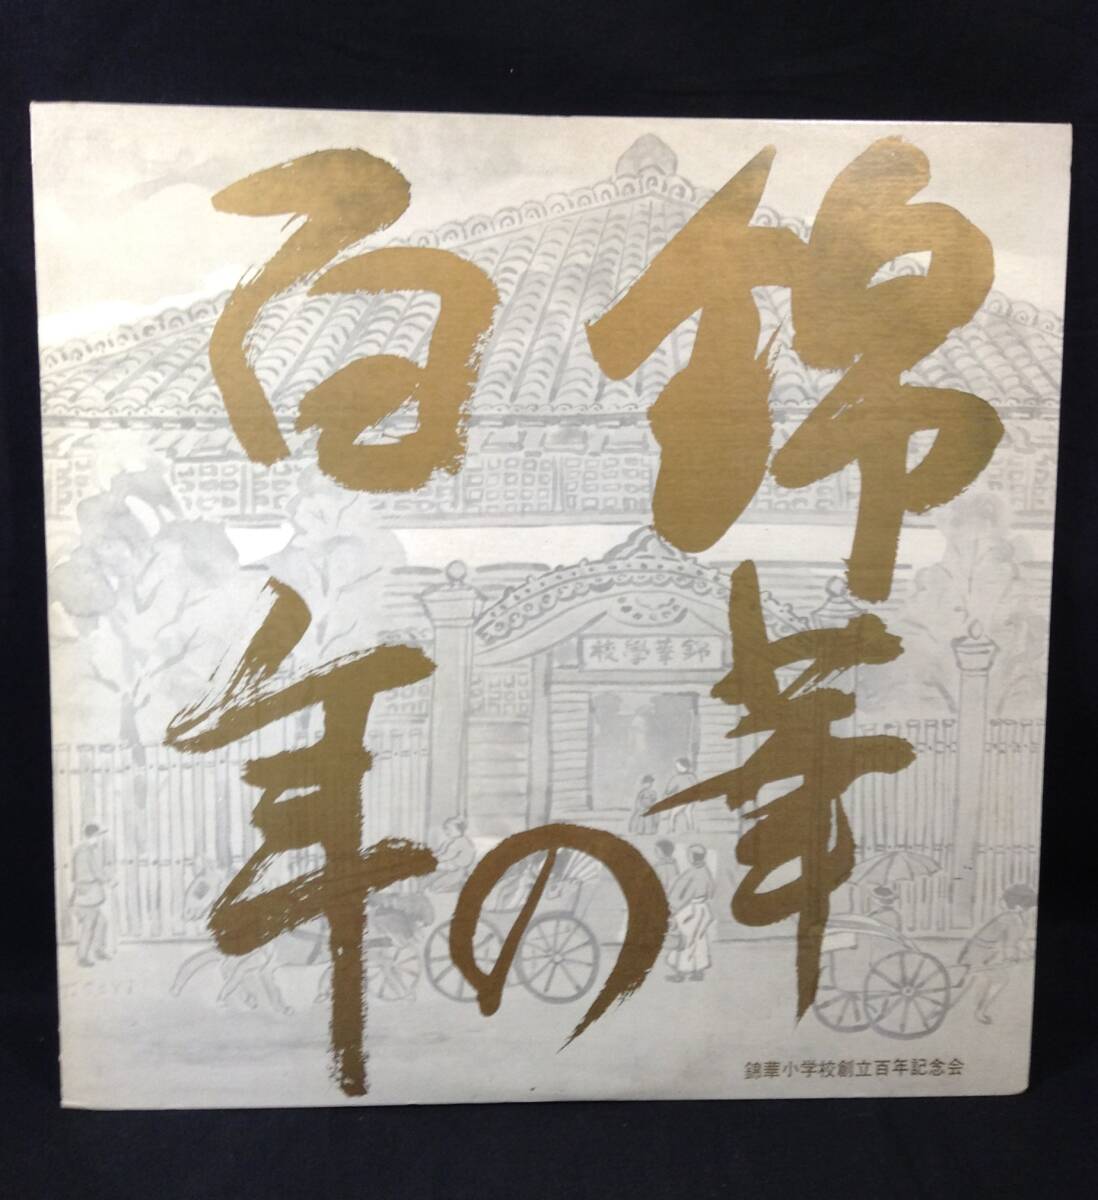 錦華の
百年
錦華學校
錦華小学校創立百年記念会